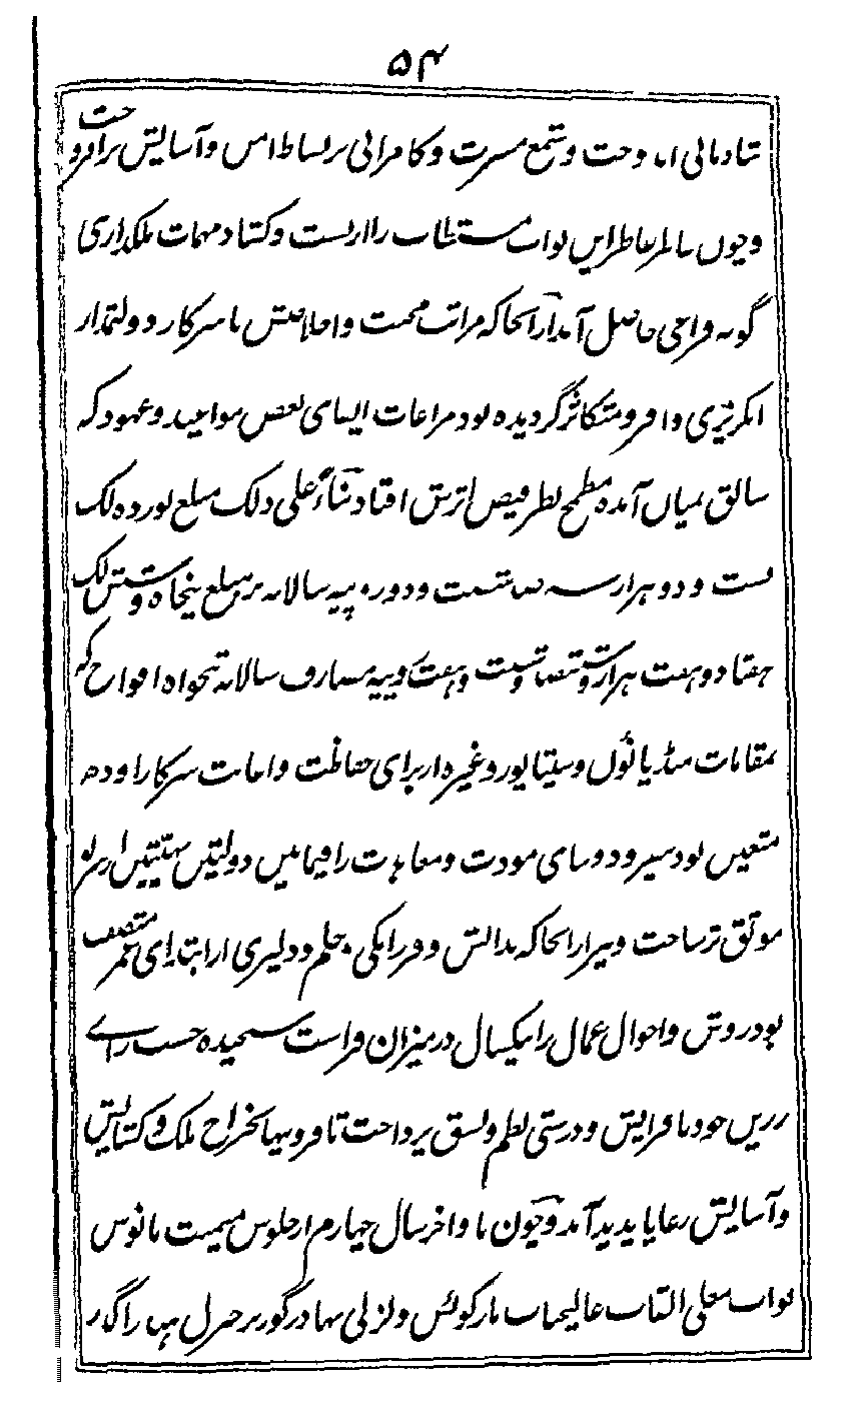 ۵۴
شادمانی انداخت و شمع مسرت و کامرانی بر بساط امن و آسایش برافروخت
و چون سالم خاطر این نواب مستطاب را از بست و کشاد مهمات ملکداری
گونه فراخی حاصل آمد از انجا که مراتب محبت و اخلاصش با سرکار دولتمدار
انگریزی وافر و متکاثر گردیده بود مراعات ایفای بعض مواعید و عهود که
سابق بمیان آمده مطمح نظر فیض اثرش افتاد بناءً علی ذلک مبلغ نوزده لک
بست و دو هزار سه صد شصت و دو روپیه سالانه بر مبلغ پنجاه و شش لک
هفتاد و هفت هزار و ششصد و سی و هشت روپیه مصارف سالانه تنخواه افواج که
بمقامات منڈیانوٗں و سیتاپور و غیره از برای حفاظت و اعانت سرکار اوده
متعین بود بیفزود و بنای مودت و معاہدت را فیمابین دولتین بهیتین از سر نو
موثق تر ساخت و نیز از انجا که بدانش و فرزانگی و حلم و دلیری از ابتدای عمر متصف
بود روش و احوال عمال را یکسال در میزان فراست سنجیده حسب رای
زرین خود بافزایش و درستی نظم و نسق پرداخت تا فزونیها بخراج ملک و کشایش
و آسایش رعایا پدید آمد و چون باواخر سال چهارم از جلوس میمنت مانوس
نواب معلی القاب عالیجناب مارکوئس ولزلی بهادر گورنر جنرل هند را گذر